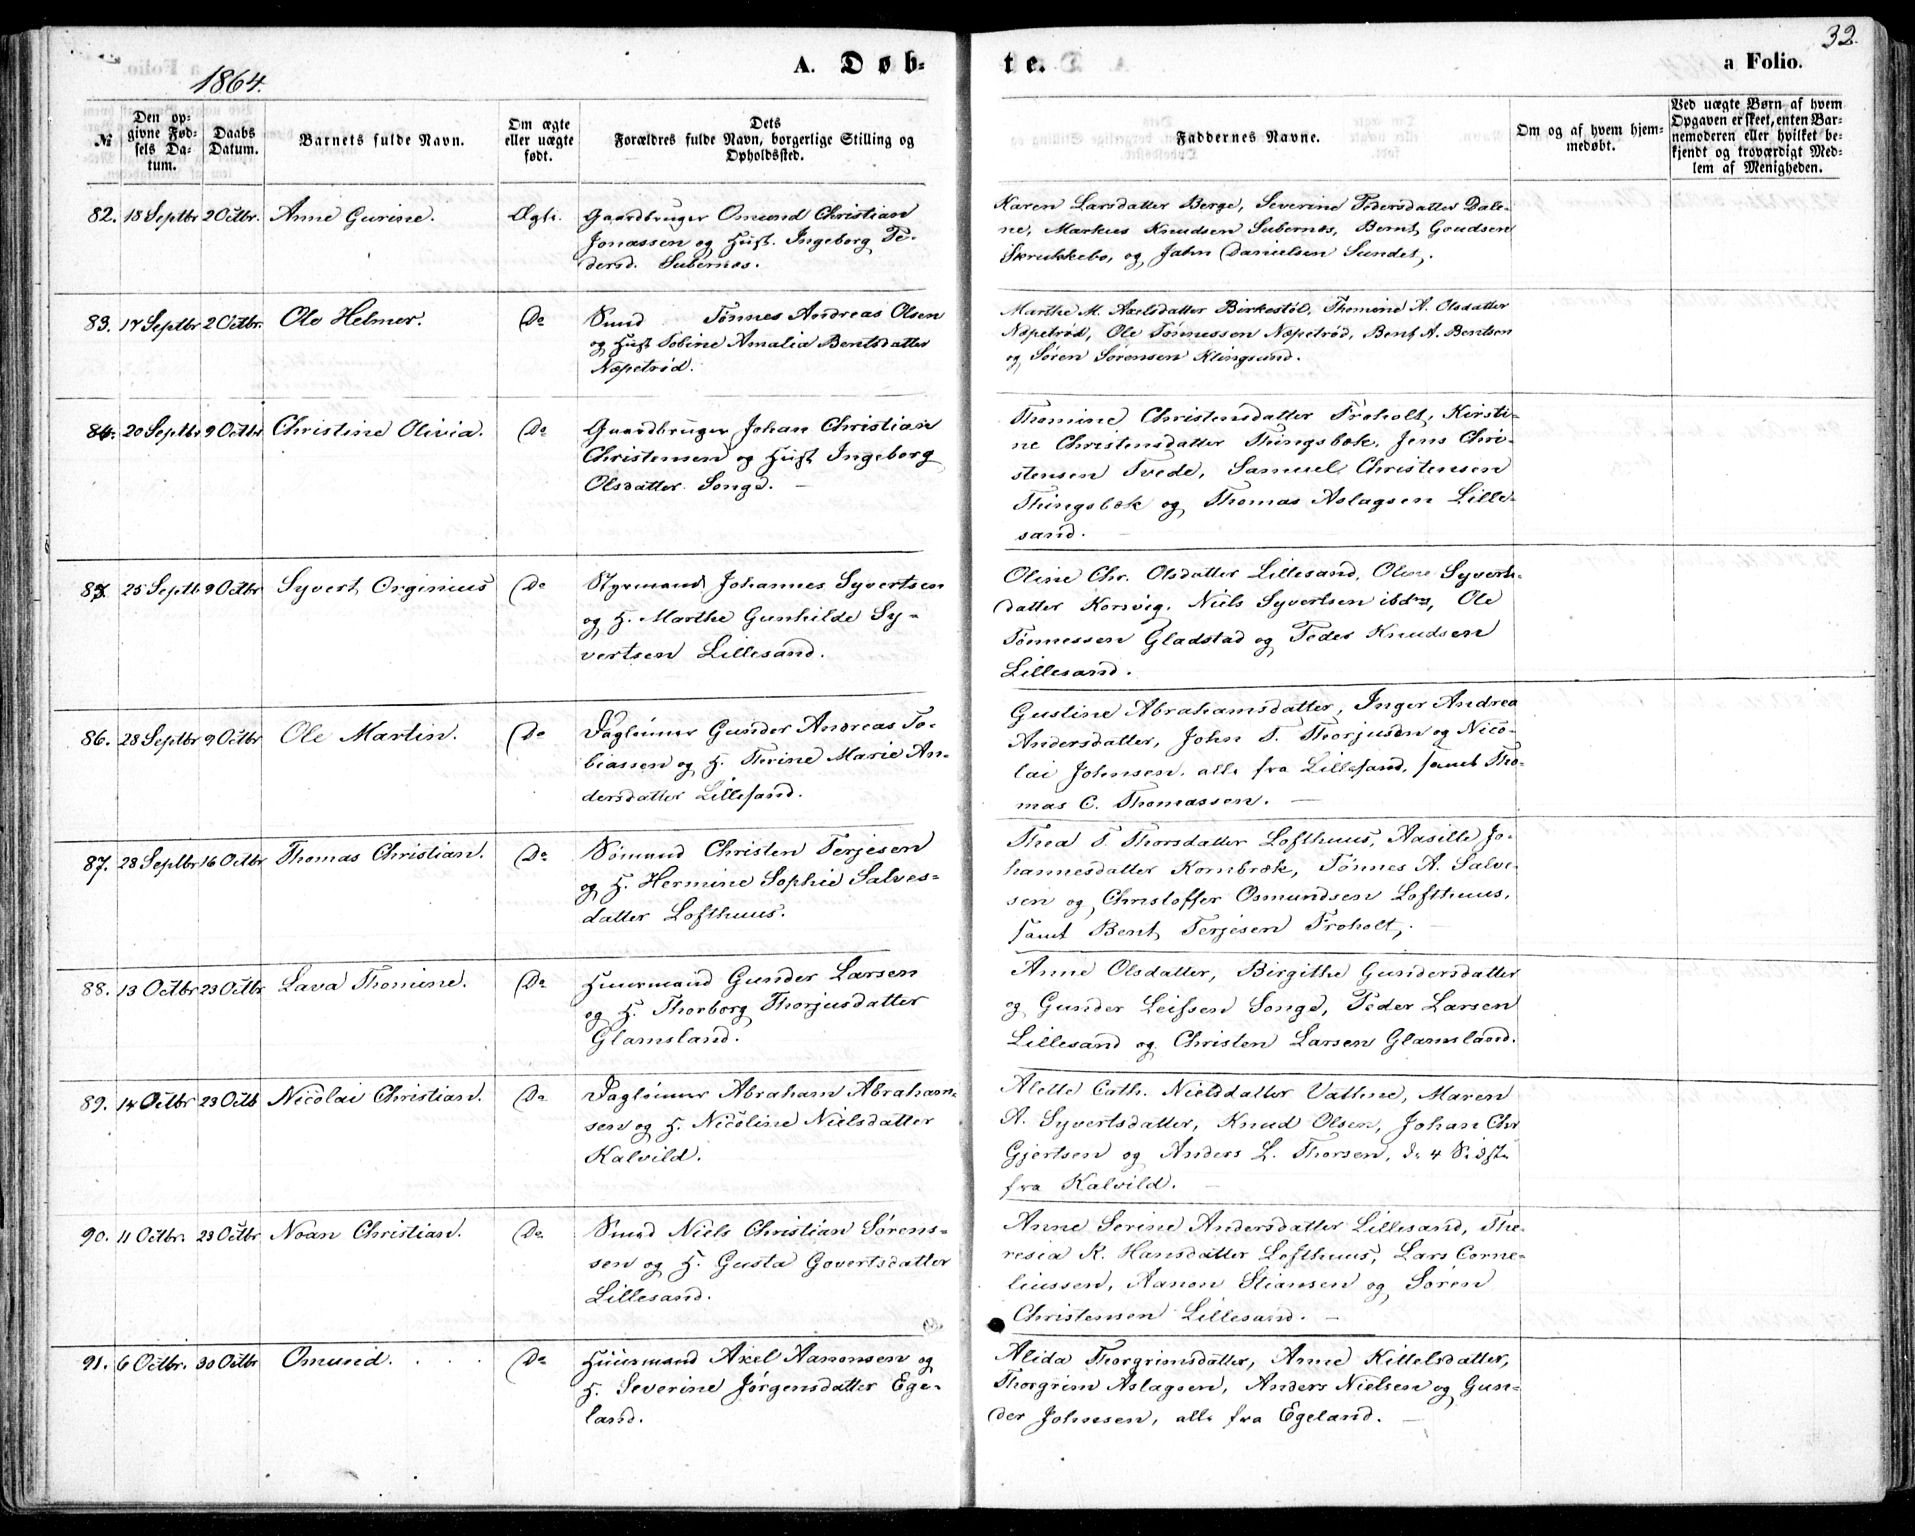 1864.
A. Døb-
te.
a Folio.
32.
№
Den op-
givne Fød-
sels Da-
tum.
Daabs
Datum.
Barnets fulde Navn.
Om ægte
eller uægte
født.
Dets
Forældres fulde Navn, borgerlige Stilling og
Opholdssted.
Faddernes Navne.
Om og af hvem hjem-
medøbt.
Ved uægte Børn af hvem
Opgaven er skeet, enten Bar-
nemoderen eller hvilket be-
kjendt og troværdigt Med-
lem af Menigheden.
82. 18 Septbr 2 Octbr. Anne Gurine. Ægte.
Gaardbruger Omund Christian
Jonassen og Hust. Ingeborg Pe-
dersd. Subernæs.
Karen Larsdatter Berge, Severine Pedersdatter Dale-
ne, Markus Knudsen Subernæs, Bernt Goudsen
Skrukkebo, og Jahn Danielsen Sundet.
83. 17 Septbr 2 Octbr. Ole Helmer. Do
Smed Tønnes Andreas Olsen
og Hust Tobine Amalia Bentsdatter
Næpetrød.
Marthe M. Axelsdatter Birkestöl, Thomine A. Olsdatter
Næpetrød, Ole Tønnessen Næpetrød, Bent A. Bentsen
og Søren Sørensen Klingsund.
84. 20 Septbr 9 Octbr Christine Olivia. Do
Gaardbruger Johan Christian
Christensen og Hust Ingeborg
Olsdatter Songe. —
Thomine Christensdatter Froholt, Kirsti-
ne Christensdatter Thingsbæk, Jens Chri-
stensen Tvede, Samuel Christensen
Thingsbæk og Thomas Aslagsen Lille-
sand.
85. 25 Septb 9 Octbr Syvert Orginius Do
Styrmand Johannes Syvertsen
og H. Marthe Gunhilde Sy-
vertsen Lillesand.
Oline Chr. Olsdatter Lillesand, Oline Syverts-
datter Korsvig, Niels Syvertsen ibdm, Ole
Tønnessen Gladstad og Peder Knudsen
Lillesand.
86. 28 Septbr 9 Octbr Ole Martin. Do
Dagleiner Gunder Andreas To-
biassen og H. Therine Marie An-
dersdatter Lillesand.
Gustine Abrahamsdatter, Inger Andrea
Andersdatter, John T. Thorjusen og Nico-
lai Johnsen, alle fra Lillesand, samt Tho-
mas C. Thomassen. —
87. 28 Septbr 16 Octbr Thomas Christian. Do
Sømand Christen Terjesen
og H. Hermine Sophie Salves-
datter Lofthuus.
Thea T. Thorsdatter Lofthuus, Aasille Jo-
hannesdatter Kornbræk, Tønnes A. Salve-
sen og Christoffer Osmundsen Lofthuus,
samt Bent Terjesen Froholt.
88. 13 Octbr 23 Octbr Lava Thomine. Do
Huusmand Gunder Larsen
og H. Thorborg Thorjusdatter
Glamsland.
Anne Olsdatter, Birgithe Gundersdatter
og Gunder Leifsen Songe, Peder Larsen
Lillesand og Christen Larsen Glamsland.
89. 14 Octbr 23 Octb Nicolai Christian. Do
Dagleiner Abraham Abraham-
sen og H. Nicoline Nielsdatter
Kalvild.
Alette Cath. Nielsdatter Vattne, Maren
A. Syvertsdatter, Knud Olsen, Johan Chr
Gjertsen og Anders L. Thorsen, de 4 Sidste
fra Kalvild. —
90. 11 Octbr. 23 Octbr Noan Christian. Do
Smed Niels Christian Sørens-
sen og H. Gusta Govertsdatter
Lillesand.
Anne Serine Andersdatter Lillesand, The-
resia K. Hansdatter Lofthuus, Lars Corne-
liussen, Aanon Stiansen og Søren
Christensen Lillesand. —
91. 6 Octbr. 30 Octbr Omund. Do
Huusmand Axel Aanonsen og
H. Severine Jørgensdatter Ege-
land.
Alida Thorgrimsdatter, Anne Kittelsdatter,
Thorgrim Aslagsen, Anders Nielsen og Gun-
der Johnsen, alle fra Egeland. —